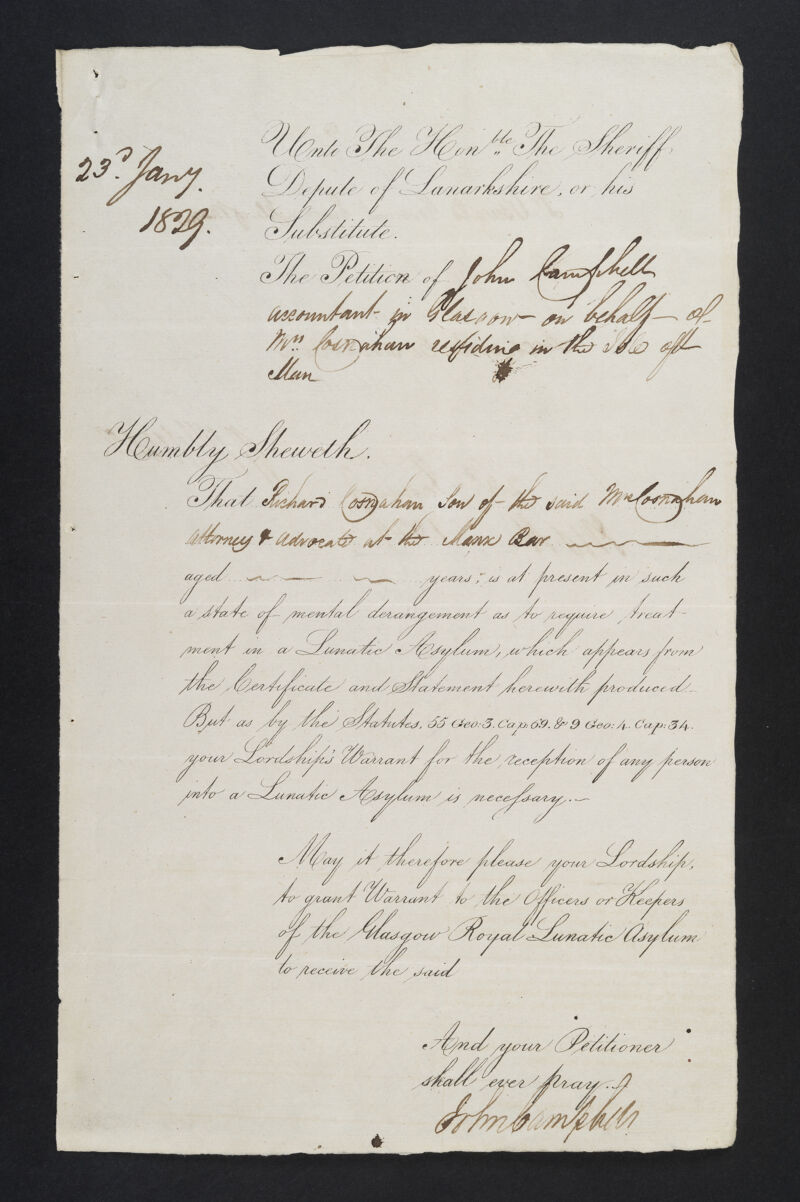 23d. Jany.
1829.
Unto The Honble. The Sheriff
Depute of Lanarkshire, or his
Substitute.
The Petition of John Campbell
accountant in Glasgow on behalf of
Mrs Cosnahan residing in the Isle of
Man
Humbly Sheweth.
That Richard Cosnahan Son of the said Mrs Cosnahan
attorney & advocate at the Manx Bar
aged years; is at present in such
a state of mental derangement as to require treat-
ment in a Lunatic Asylum, which appears from
the Certificate and Statement herewith produced_
But as by the Statutes, 55 Geo: 3. Cap: 69. & 9 Geo: 4. Cap: 34.
your Lordship's Warrant for the reception of any person
into a Lunatic Asylum is necessary.~
May it therefore please your Lordship,
to grant Warrant to the Officers or Keepers
of the Glasgow Royal Lunatic Asylum
to receive the said
And your Petitioner
shall ever pray.
John Campbell